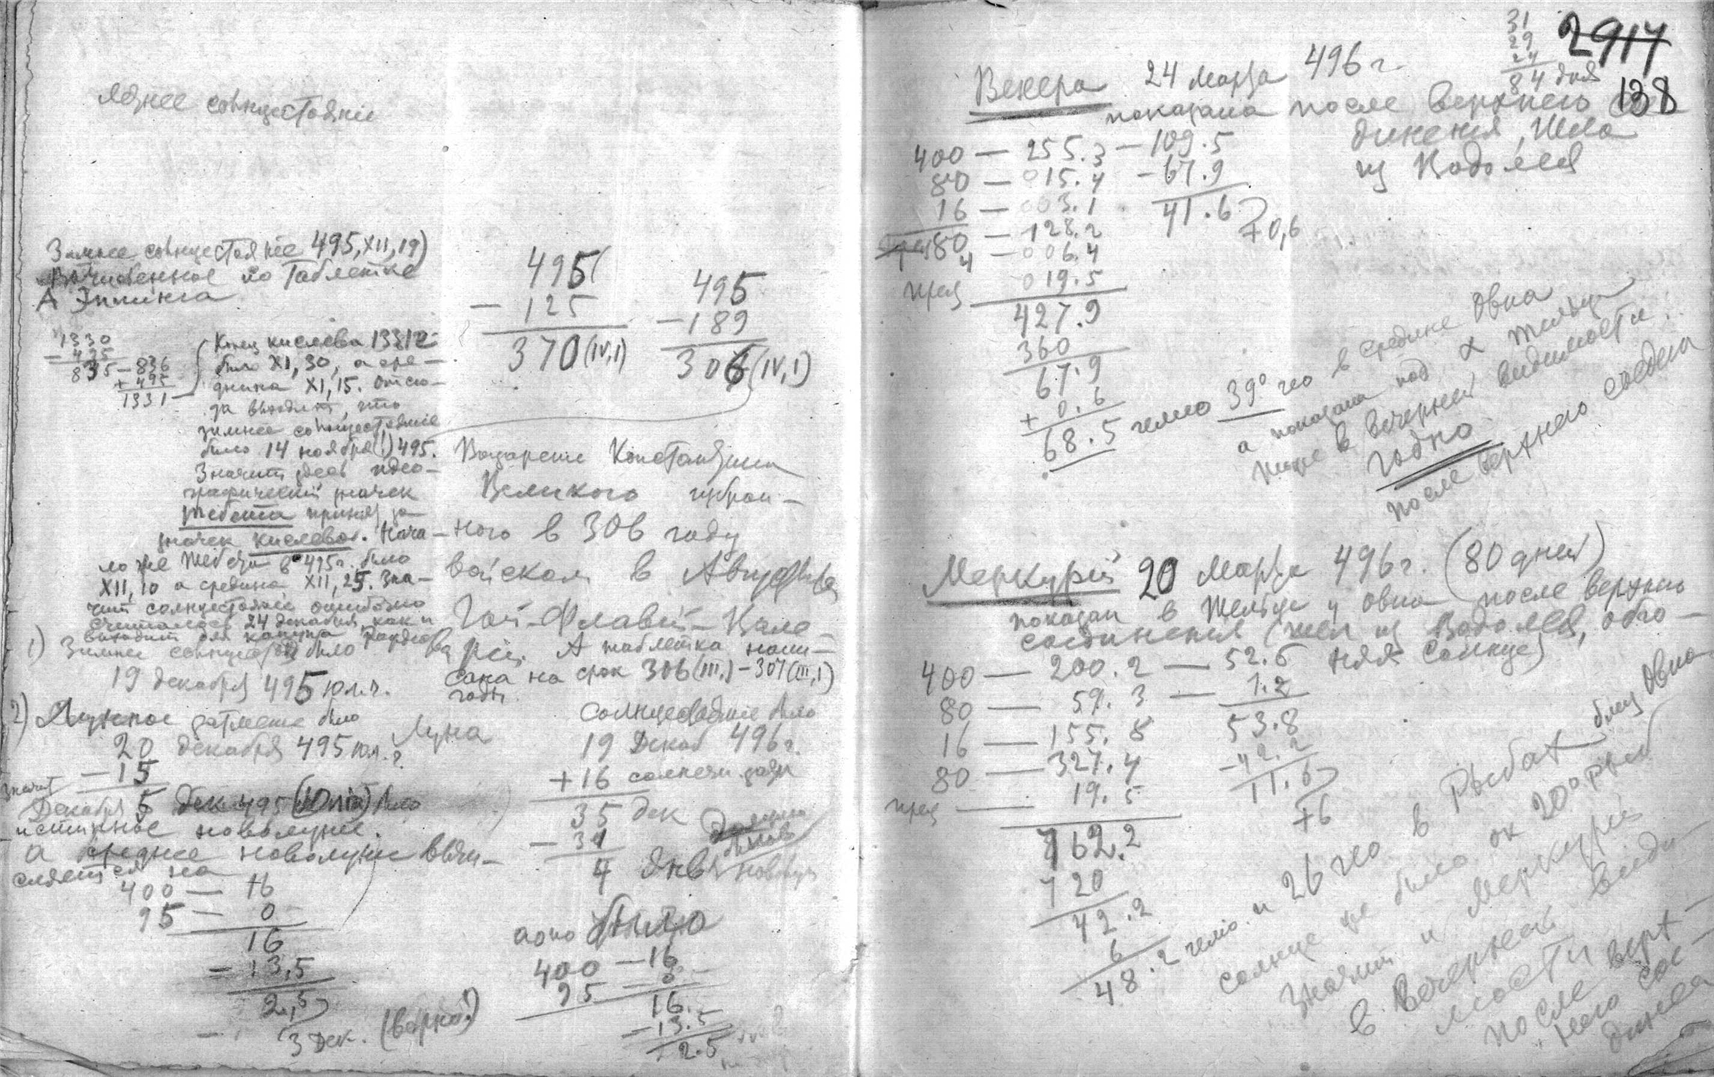 Зимнее солнцестояние 495, XII, 19)
Вычисленное по Таблетке
А Эппинга
1330
- 495
835 - 836
+ 495
1331
Конец кислева 1331 г.
было XI, 30, а сре-
дина XI, 15. Отсю-
да выходит, что
зимнее солнцестояние
было 14 ноября (!) 495.
Значит здесь идео-
графический значек
Тебета принят за
значек кислева. Нача-
ло же Тебета в 495 г. было
XII, 10 а средина XII, 25. Зна-
чит солнцестояние ошибочно
считалось 24 декабря, как и
выходит для
1) Зимнее солнцестояние было
19 декабря 495 юл. г.
2) Лунное затмение было
20 декабря 495 юл. г.
- 15
Значит
Декабря 5 дек 495 было
истинное новолуние.
а среднее новолуние вычи-
сляется на
400 — 16
95 — 0
16
- 13,5
2,5
3 Дек. (верно!)
495
- 125
370 (IV, 1)
495
- 189
306 (IV, 1)
Воцарение Константина
Великого избран-
ного в 306 году
войском в Августы
Гай-Флавий-Вале-
рий. А таблетка напи-
сана на срок 306 (III,) — 307 (III, 1)
годы.
Луна
солнцестояние было
19 Декаб 496 г.
+ 16 солнечн.
35 дек
- 31
4 Янв
оно было
400 — 16
95 — 0
16.
- 13.5
2.5
31
29
24
84 дня
2917
138
Венера 24 марта 496 г.
показана после верхнего сое-
динения, шла
из Водолея
400 — 255.3 — 109.5
80 — 015.4 — 67.9
16 — 003.1 41.6
80 — 128.2 + 0,6
4 — 006.4
прец 019.5
427.9
360
67.9
+ 0.6
68.5 гелио 39° гео в средине Овна
а показана под
тоже в вечерней видимости.
Годно
после верхнего соедин
Меркурий 20 Марта 496 г. (80 дней)
показан в Тельце у Овна после верхнего
соединения (шел из Водолея, обго-
няя солнце)
400 — 200.2 — 52.6
80 — 59.3 — 1.2
16 — 155.8 53.8
80 — 327.4 - 42.2
прец — 19.5 11.6
+6
762.2
720
42.2
6
48.2 гелио. и 26 гео в Рыбах близ Овна
солнце же было ок 200 рыб
Значит и Меркурий
в вечерней види-
мости
после верх-
него сое-
динен